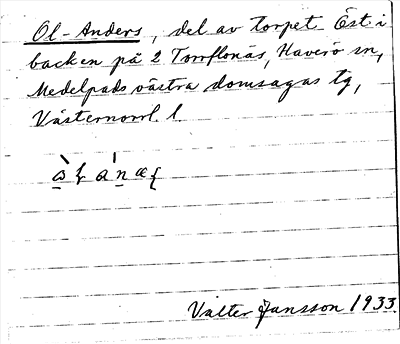 Ol-Anders, del av torpet Öst. i
backen på 2 Torrflonäs, Haverö sn,
Medelpads västra domsagas tg,
Västernorrl. l.
Valter Jansson 1933.